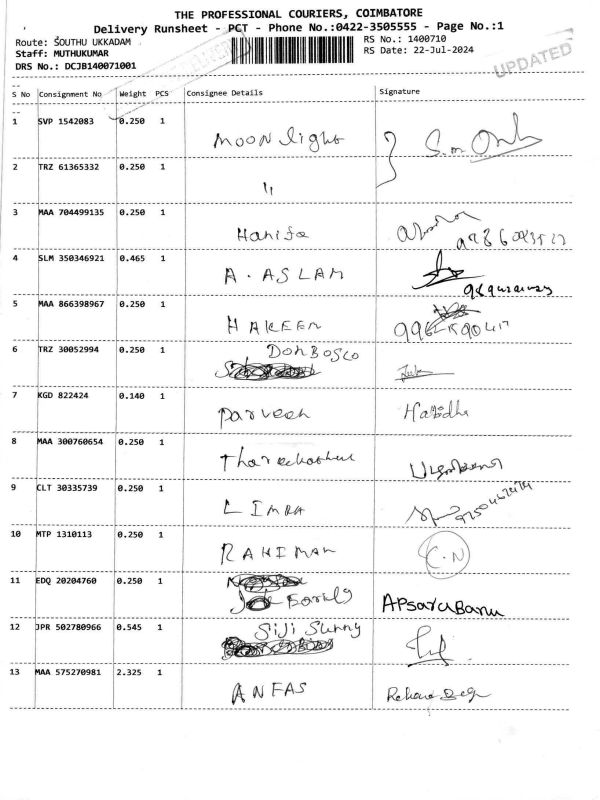 THE PROFESSIONAL COURIERS, COIMBATORE
Delivery Runsheet - PCT - Phone No.:0422-3505555 - Page No.:1
Route: SOUTHU UKKADAM
RS No.: 1400710
Staff: MUTHUKUMAR
RS Date: 22-Jul-2024
DRS No.: DCJB140071001
UPDATED
S No Consignment No Weight PCS Consignee Details Signature
1 SVP 1542083 0.250 1
Moon light
2 TRZ 61365332 0.250 1
"
3 MAA 704499135 0.250 1
Hanifa
4 SLM 350346921 0.465 1
A. ASLAM
5 MAA 866398967 0.250 1
HAKEEN
6 TRZ 30052994 0.250 1
DON BOSCO
7 KGD 822424 0.140 1
Parveen Habidha
8 MAA 300760654 0.250 1
9 CLT 30335739 0.250 1
LIMRA
10 MTP 1310113 0.250 1
RAHIMAN C.N
11 EDQ 20204760 0.250 1
Apsara Banu
12 JPR 502780966 0.545 1
SIJI Sunny
13 MAA 575270981 2.325 1
ANFAS